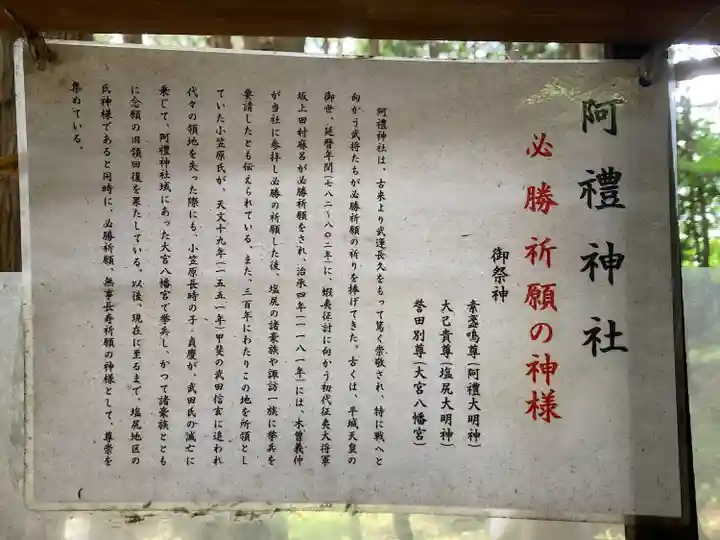 阿禮神社
必勝祈願の神様
御祭神
素盞鳴尊（阿禮大明神）
大己貴尊（塩尻大明神）
誉田別尊（大宮八幡宮）
阿禮神社は、古来より武運長久をもって篤く崇敬され、特に戦へと
向かう武将たちが必勝祈願の祈りを捧げてきた。古くは、平城天皇の
御世、延暦年間（七八二～八〇二年）に、蝦夷征討に向かう初代征夷大将軍
坂上田村麻呂が必勝祈願をされ、治承四年（一一八一年）には、木曽義仲
が当社に参拝し必勝の祈願した後、塩尻の諸豪族や諏訪一族に挙兵を
要請したとも伝えられている。また、三百年にわたりこの地を所領とし
ていた小笠原氏が、天文十九年（一五五一年）甲斐の武田信玄に追われ
代々の領地を失った際にも、小笠原長時の子 貞慶が、武田氏の滅亡に
乗じて、阿禮神社域にあった大宮八幡宮で挙兵し、かつて諸豪族ととも
に念願の旧領回復を果たしている。以後、現在に至るまで、塩尻地区の
氏神様であると同時に、必勝祈願、無事長寿祈願の神様として、尊崇を
集めている。